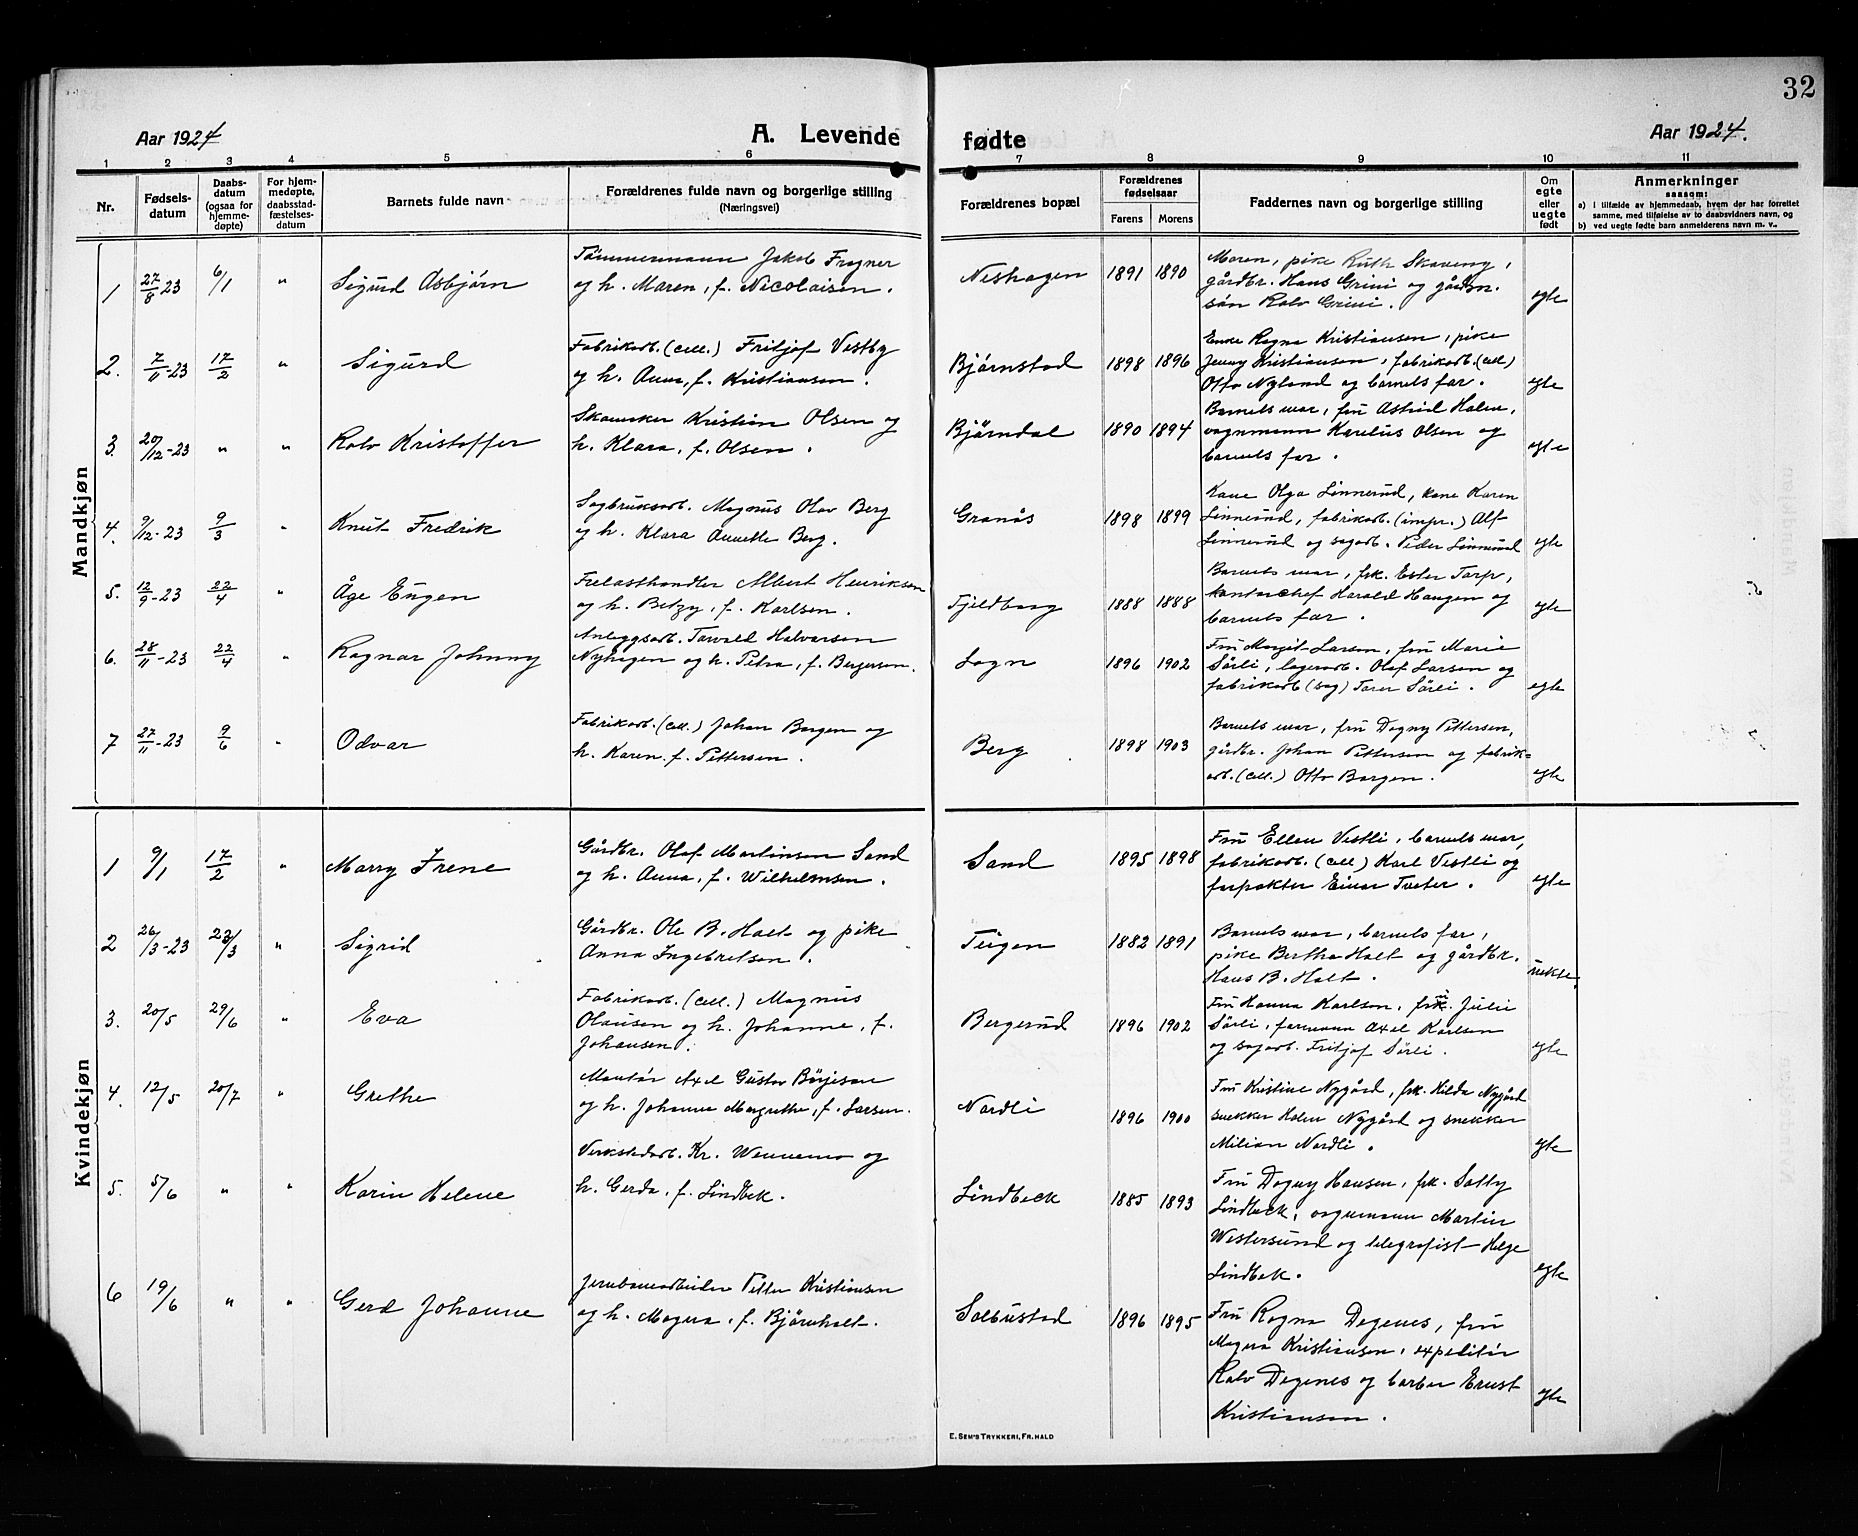 32
Aar 1924
A. Levende
fødte
Aar 1924.
1 2 3 4 5 6 7 8 9 10 11
Nr.
Fødsels-
datum
Daabs-
datum
(ogsaa for
hjemme-
døpte)
For hjem-
medøpte,
daabsstad-
fæstelses-
datum
Barnets fulde navn
Forældrenes fulde navn og borgerlige stilling
(Næringsvei)
Forældrenes bopæl
Forældrenes
fødselsaar
Farens Morens
Faddernes navn og borgerlige stilling
Om
egte
eller
uegte
født
Anmerkninger
saasom:
a) i tilfælde av hjemmedaab, hvem der har forrettet
samme, med tilføielse av to daabsvidners navn, og
b) ved uegte fødte barn anmelderens navn m. v.
Mandkjøn
1 27/8-23 6/1 " Sigurd Asbjørn
Tömmermann Jakob Frogner
og h. Maren, f. Nicolaisen.
Neshagen 1891 1890
Moren, pike Ruth Skaveng,
gårdbr. Hans Grini og gårdm.
sön Rolv Grini.
egte
2. 7/11-23 17/2 " Sigurd
Fabrikarb. (cell.) Fritjof Vestby
og h. Anna, f. Kristiansen.
Bjørnstad 1898 1896
Enke Ragna Kristiansen, pike
Jenny Kristiansen, fabrikarb. (cell)
Otto Nyland og barnets far.
egte
3. 20/12-23 " " Rolv Kristoffer
Skomaker Kristian Olsen og
h. Klara, f. Olsen.
Björndal 1890 1894
Barnets mor, fru Astrid Holm,
vognmann Karelius Olsen og
barnets far.
egte
4. 9/12-23 9/3 " Knut Fredrik
Sagbruksarb. Magnus Olav Berg
og h. Klara Annette Berg.
Granås 1898 1899
Kone Olga Linnerud, kone Karen
Linnerud, fabrikarb. (impr.) Alf
Linnerud og sagarb. Peder Linnerud
egte
5. 12/9-23 22/4 " Åge Eugen
Trelasthandler Albert Henriksen
og h. Betzy, f. Karlsen.
Fjeldborg 1888 1888
Barnets mor, frk. Ester Torp,
kontorchef Harald Haugen og
barnets far.
egte
6. 28/11-23 22/4 " Ragnar Johnny
Anleggsarb. Torvald Halvorsen
Nyhagen og h. Petra, f. Bergersen.
Sogn 1896 1902
Fru Margit Larsen, fru Marie
Sörli, lagerarb. Olaf Larsen og
fabrikarb (sag) Torer Sörli.
egte
7 27/11-23 9/6 " Odvar
Fabrikarb. (cell.) Johan Borgen og
h. Karen. f. Pettersen.
Berg 1898 1903
Barnets mor, fru Dagny Pettersen,
gårdbr. Johan Pettersen og fabrik-
arb. (cell.) Otto Borgen.
egte
Kvindekjøn
1 9/1 17/2 " Marry Irene
Gårdbr. Olaf Martinsen Sand
og h. Anna, f. Wilhelmsen.
Sand 1895 1898
Fru Ellen Vestli, barnets mor,
fabrikarb. (cell) Karl Vestli og
forpakter Einar Tveter.
egte
2 26/3-23 23/3 " Sigrid
Gårdbr. Ole B. Holt og pike
Anna Ingebretsen.
Teigen 1882 1891
Barnets mor, barnets far,
pike Bertha Holt og gårdbr.
Hans B. Holt.
uekte.
3. 20/5 29/6 " Eva
Fabrikarb. (cell.) Magnus
Olausen og h. Johanne, f.
Johansen.
Bergerud 1896 1902
Fru Hanna Karlsen, fru Julie
Sörli, formann Axel Karlsen
og sagarb. Fritjof Sörli.
egte
4. 12/5 20/7 " Grethe
Montör Axel Gustav Börjeson
og h. Johanne Margrethe, f. Larsen.
Nordli 1896 1900
Fru Kristine Nygård, frk. Hilda Nygård
snekker Holm Nygård og snekker
Milian Nordli.
egte
5. 5/6 " " Karin Helene
Verkstedarb. Kr. Wennemo og
h. Gerda, f. Lindbek.
Lindbeck 1885 1893
Fru Dagny Hansen, frk. Solly
Lindbeck, vognmann Martin
Westersund og telegrafist Helge
Lindbek.
egte
6 19/6 " " Gerd Johanne
Jernbanearbeider Petter Kristiansen
og h. Magna, f. Björnholt.
Solbustad 1896 1895
Fru Ragna Degenes, fru
Magna Kristiansen, expeditör
Rolv Degenes og barber Ernst
Kristiansen.
egte
E. SEM'S TRYKKERI, FR. HALD